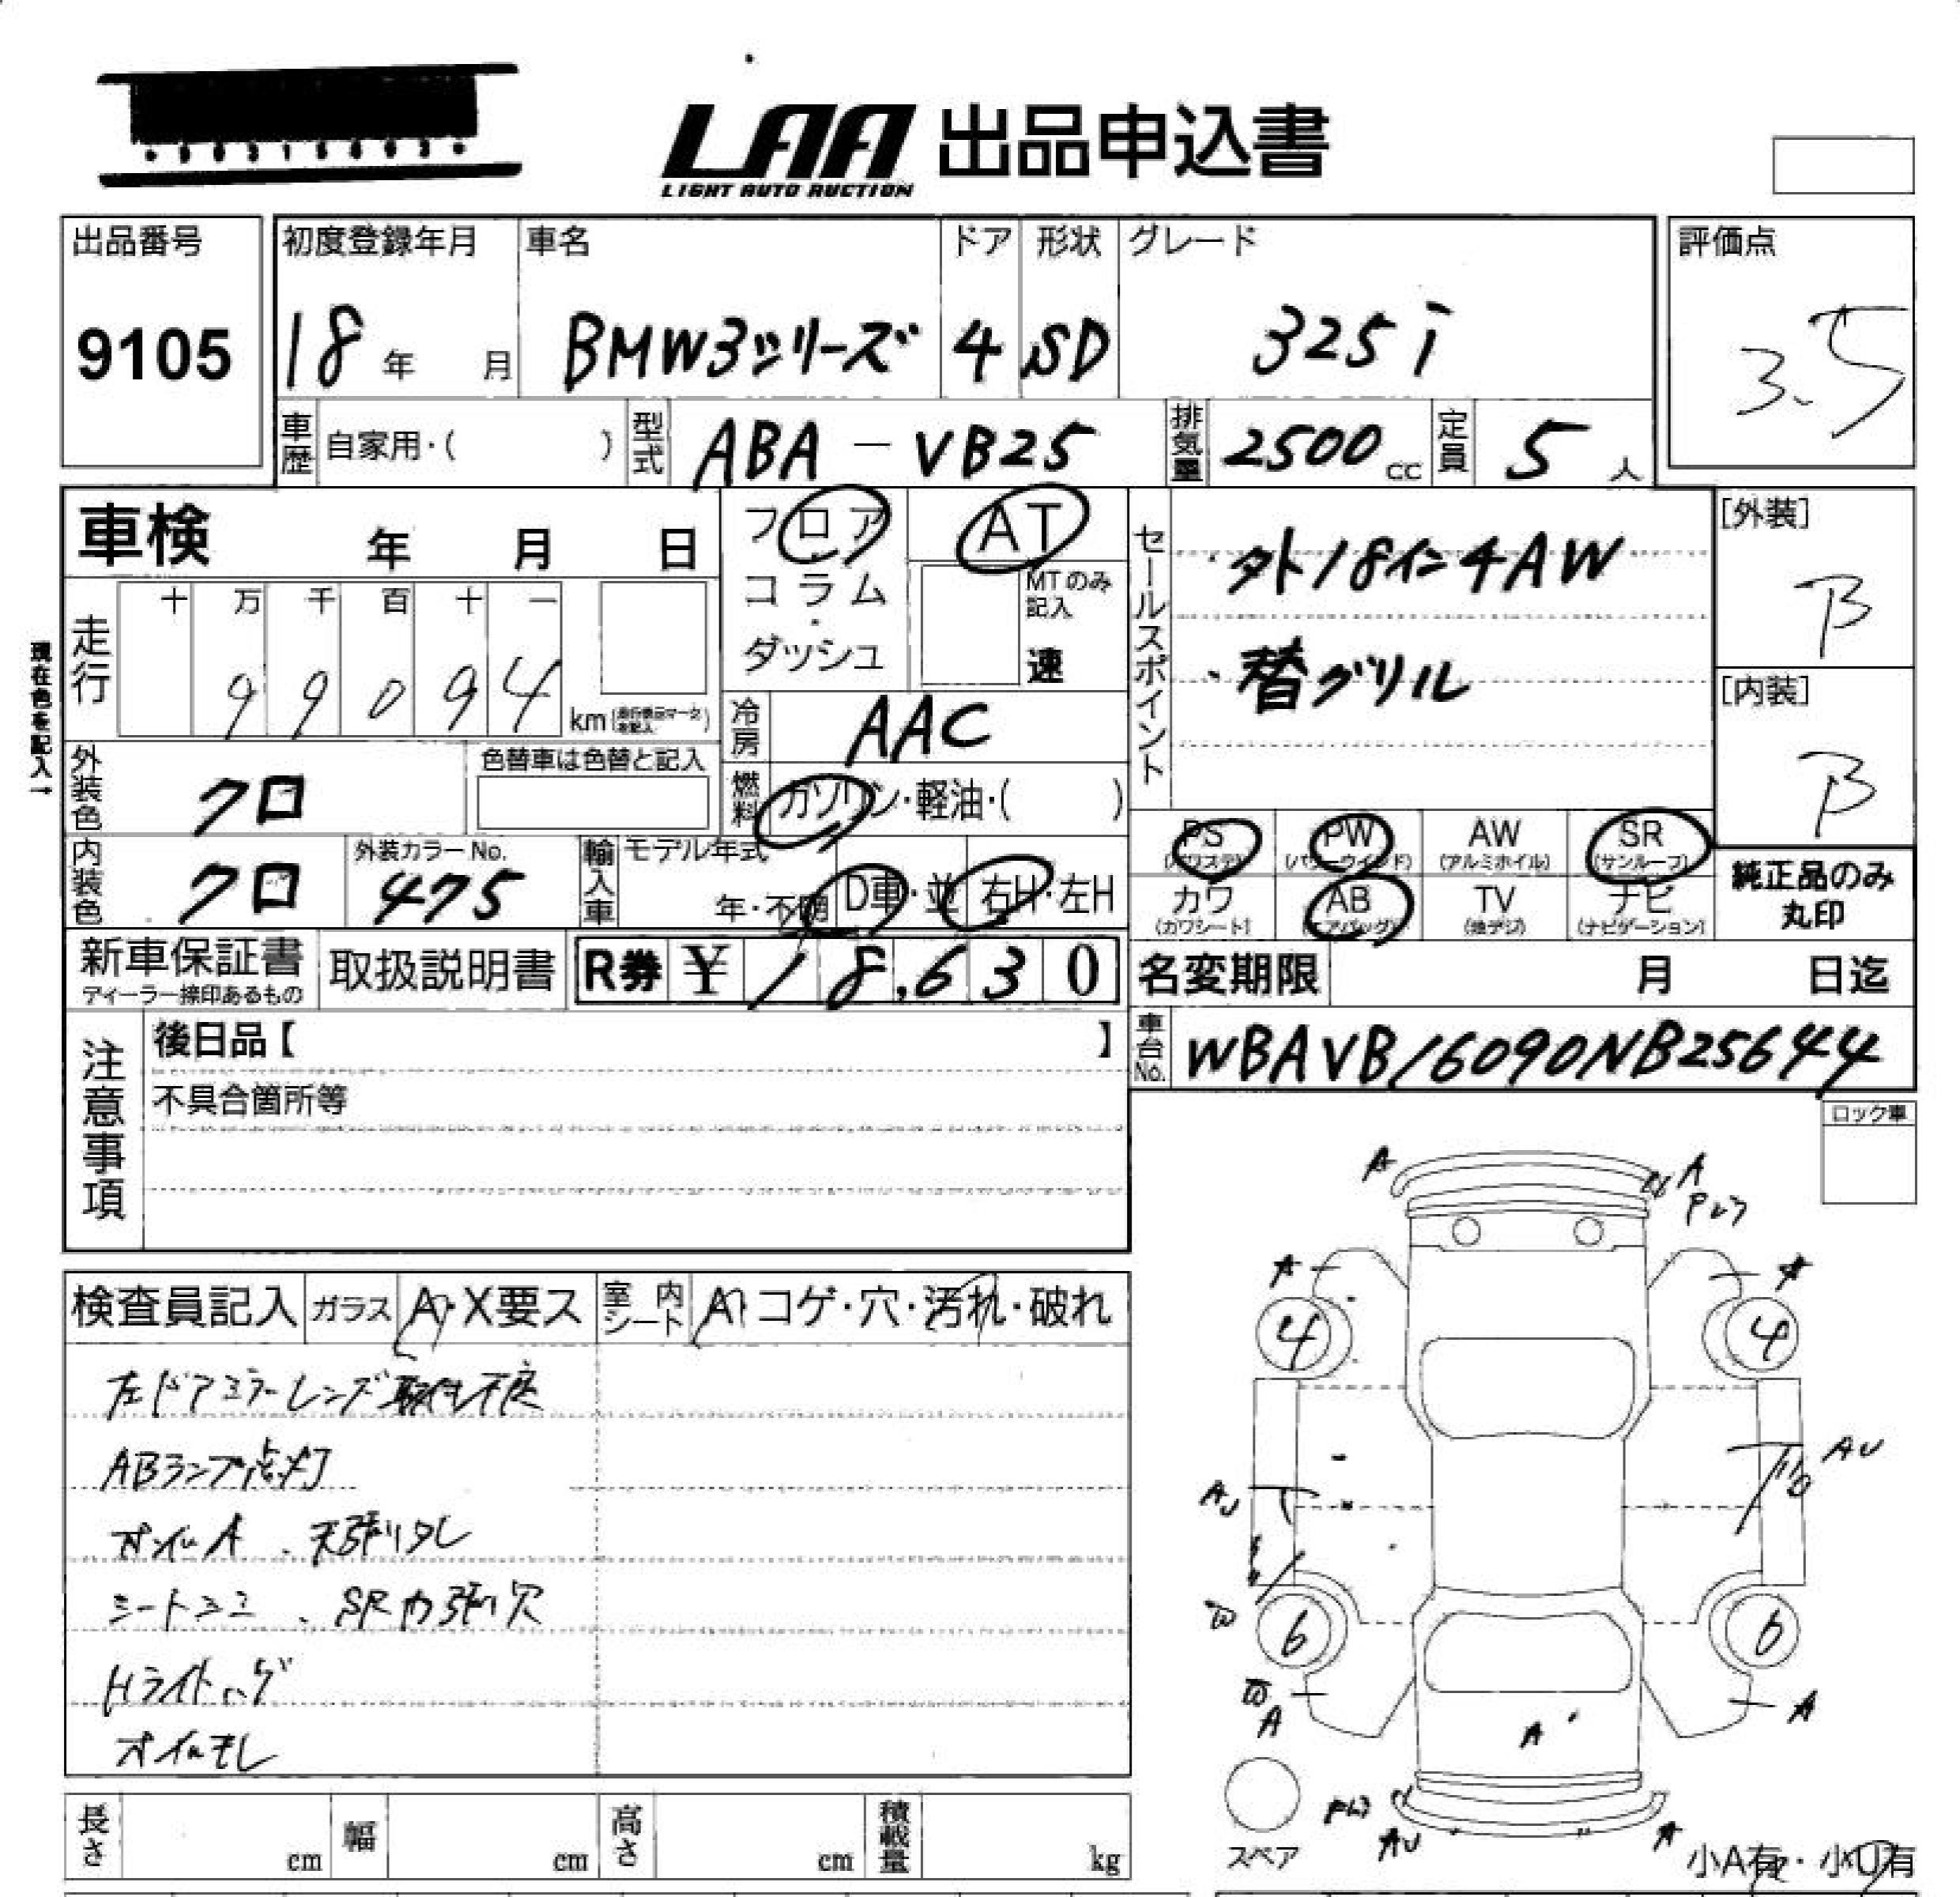 LAA 出品申込書
LIGHT AUTO AUCTION
出品番号
9105
初度登録年月
18年 月
車名
BMW3シリーズ
ドア
4
形状
SD
グレード
325i
評価点
3.5
車歴 自家用・( )
型式 ABA-VB25
排気量 2500cc
定員 5人
車検 年 月 日
フロア・コラム・ダッシュ
AT
MTのみ記入
速
セールスポイント
・外18インチAW
・替グリル
[外装]
B
[内装]
B
現在色を記入→
走行 十 万 千 百 十 一
99094 km
冷房 AAC
外装色 クロ
色替車は色替と記入
燃料 ガソリン・軽油・( )
内装色 クロ
外装カラーNo.
475
輸入車 モデル年式
年・不明 D車・並 右H・左H
PS (パワステ)
PW (パワーウインド)
AW (アルミホイル)
SR (サンルーフ)
カワ (カワシート)
AB (エアバッグ)
TV (地デジ)
ナビ (ナビゲーション)
純正品のみ
丸印
新車保証書
ディーラー捺印あるもの
取扱説明書
R券 ¥18,630
名変期限 月 日迄
車台No. WBAVB16090NB25644
注意事項
後日品【 】
不具合箇所等
ロック車
検査員記入
ガラス A・X要ス
室内シート A・コゲ・穴・汚れ・破れ
左ドアミラーレンズ取付不良
ABランプ点灯
オイルA、天張りタレ
シートスミ、SR内張り穴
Hライトハゲ
オイルモレ
A
A
Pレヲ
A
A
4
4
AU
AU
W
6
6
W
A
A
A
AU
A
スペア
小A有・小U有
長さ cm
幅 cm
高さ cm
積載量 kg